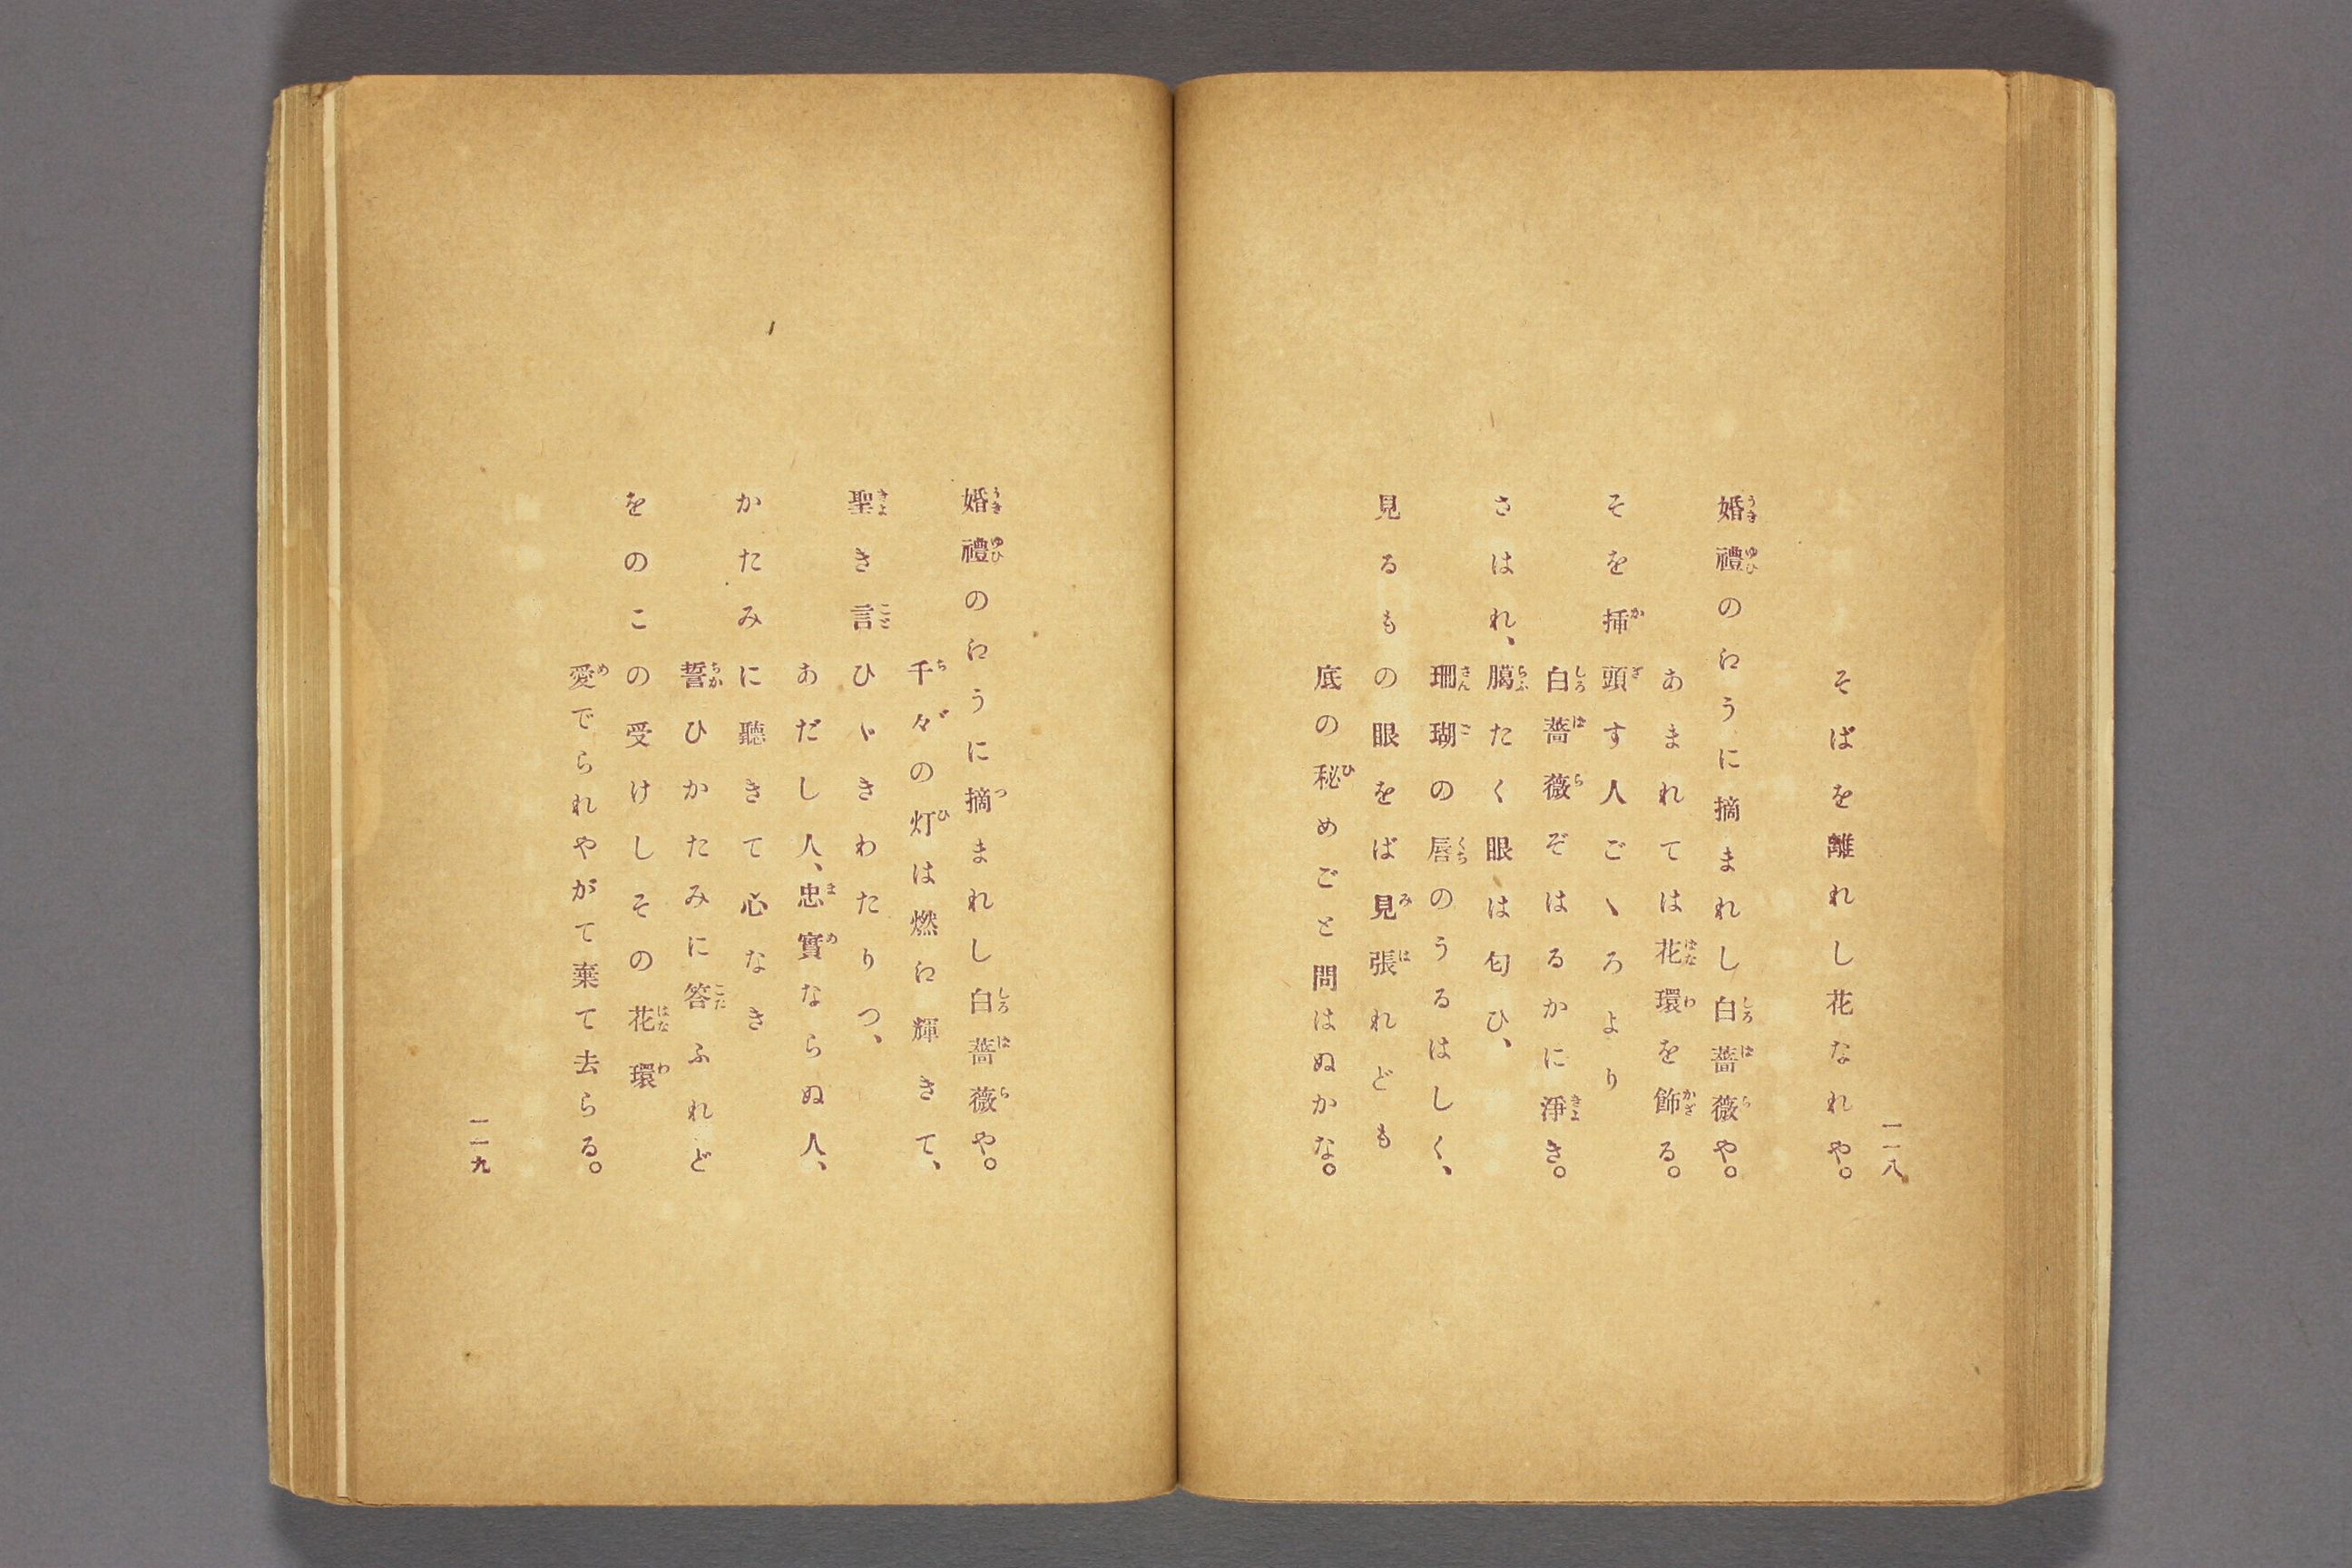 一一八
そばを離れし花なれや。
婚禮の𛀁うに摘まれし白薔薇や。
あまれては花環を飾る。
そを挿頭す人ごゝろより
白薔薇ぞはるかに淨き。
さはれ、﻿臈たく眼は匂ひ、
珊瑚の唇のうるはしく、
見るもの眼をば見張れども
底の秘めごと問はぬかな。
婚禮の𛀁うに摘まれし白薔薇や。
千々の灯は燃𛀁輝きて、
聖き言ひゞきわたりつ、
あだし人、忠實ならぬ人、
かたみに聽きて心なき
誓ひかたみに答ふれど
をのこの受けしその花環
愛でられやがて棄て去らる。
一一九